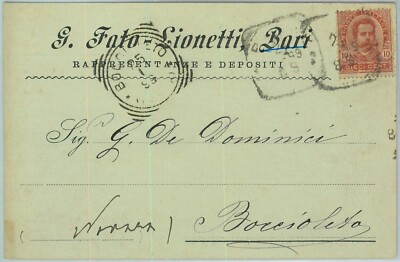 G. Fato Lionetti, Bari
RAPPRESENTANZE E DEPOSITI
10
Sig. G. De Dominici
(Novara)
Boccioleto